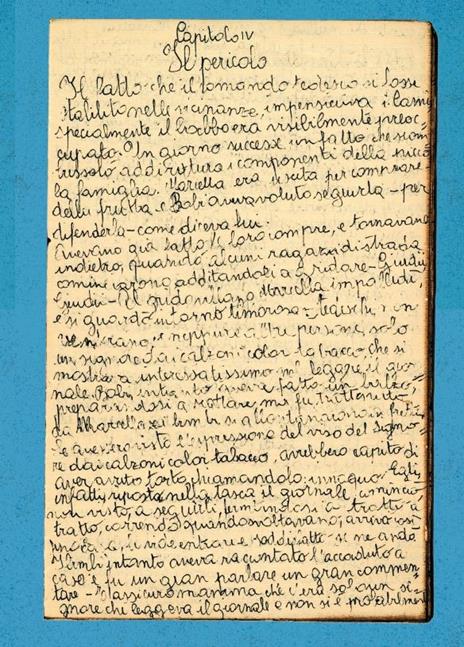 Capitolo IV
Il pericolo
Il fatto che il comando tedesco si fosse
stabilito nelle vicinanze, impensieriva i
specialmente il babbo era visibilmente preoc-
cupato. Un giorno successe un fatto che
addirittura i componenti della picco
la famiglia. Marcella era uscita per comprare
della frutta e Bobi aveva voluto seguirla – per
difenderla – come diceva lui.
Avevano già fatto le loro compre, e tornavano
indietro, quando alcuni ragazzi di strada
cominciarono additandoli a gridare – Giudii
Giudii – Il grido Marcella impallidì,
e si guardò intorno timorosa – Tedeschi, non
ve n'erano, e neppure altre persone, solo
un signore dai calzoni color tabacco, che si
mostrava interessatissimo nel leggere, il gior
nale. Bobi intanto aveva fatto un balzo
preparandosi a lottare, ma fu trattenuto,
da Marcella e i bimbi si allontanarono in fretta
Se avessero visto l'espressione del viso del signo-
re dai calzoni color tabacco, avrebbero capito di
aver avuto torto, chiamandolo: innocuo. Egli,
infatti, riposto nella tasca il giornale, cominciò
non visto, a seguirli, fermandosi a tratti a
tratto, correndo quando svoltavano, arrivò così
a, li vide entrare e soddisfatto se ne andò
I bimbi intanto aveva raccontato l'accaduto a
casa e fu un gran parlare un gran commen
tare – mamma che c'era solo un si-
gnore che leggeva il giornale e non si è probabilment